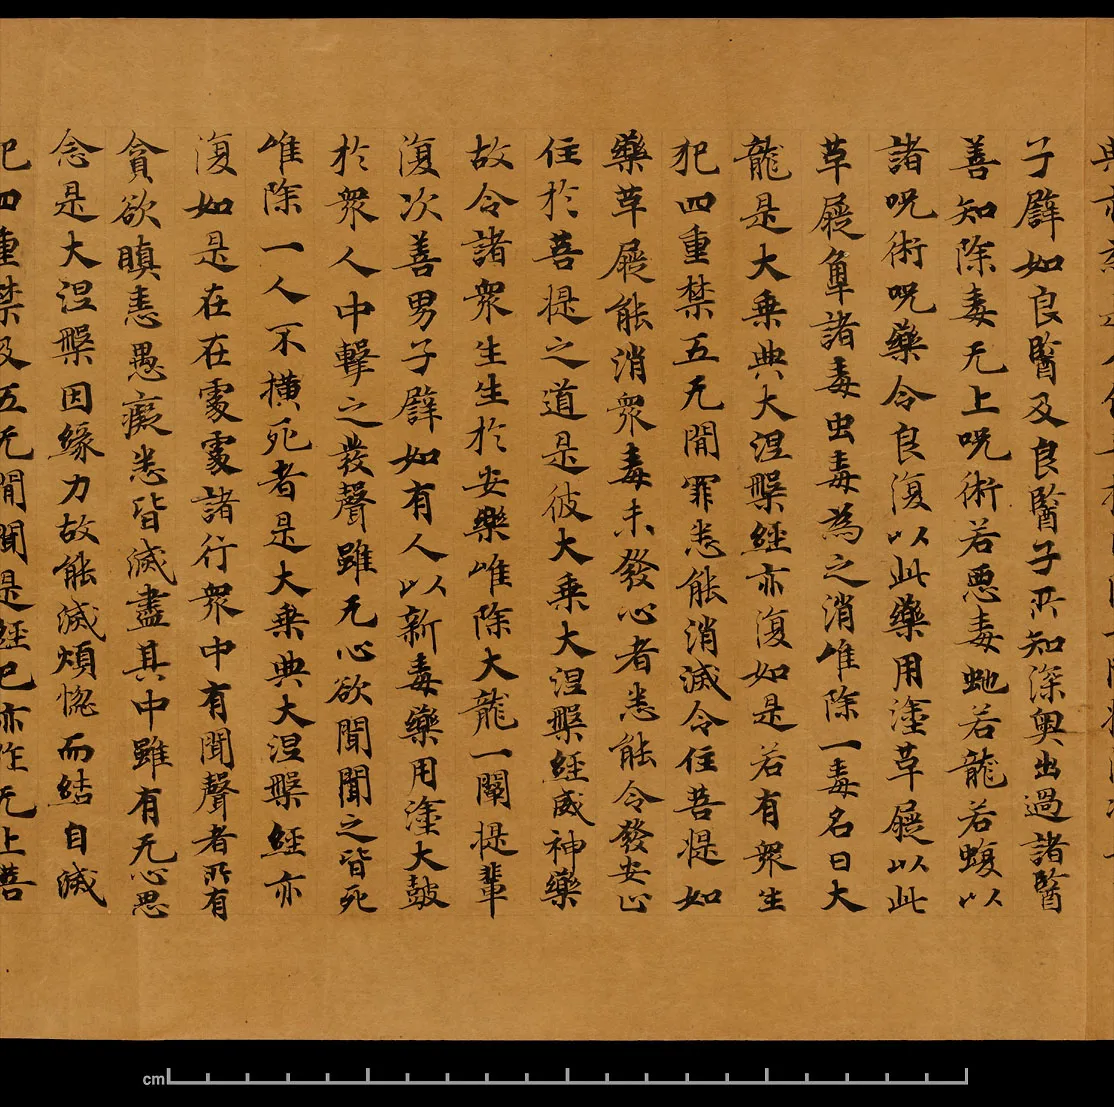 子譬如良醫及良醫子所知深奧出過諸醫
善知除毒无上呪術若惡毒虵若龍若蝮以
諸呪術呪藥令良復以此藥用塗草屣以此
草屣觸諸毒虫毒為之消唯除一毒名曰大
龍是大乘典大涅槃經亦復如是若有衆生
犯四重禁五无閒罪悉能消滅令住菩提如
藥草屣能消衆毒未發心者悉能令發安止
住於菩提之道是彼大乘大涅槃經威神藥
故令諸衆生生於安樂唯除大龍一闡提輩
復次善男子譬如有人以新毒藥用塗大鼓
於衆人中擊之發聲雖无心欲聞聞之皆死
唯除一人不橫死者是大乘典大涅槃經亦
復如是在在處處諸行衆中有聞聲者所有
貪欲瞋恚愚癡悉皆滅盡其中雖有无心思
念是大涅槃因緣力故能滅煩惱而結自滅
犯四重禁及五无閒聞是經已亦作无上菩
cm